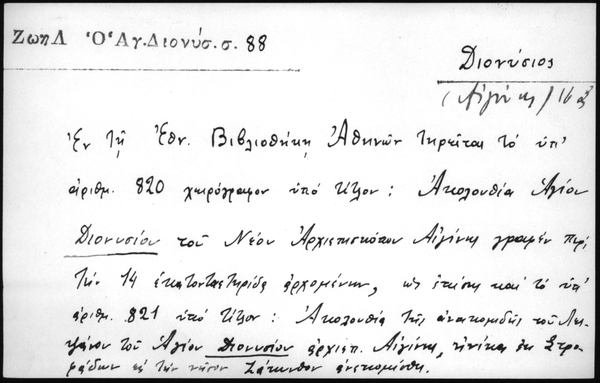 ΖωηΛ Ὁ Ἁγ.Διονύσ.σ. 88
Διονύσιος
(Αἰγίνης) 16
Ἐν τῇ Ἐθν. Βιβλιοθήκῃ Ἀθηνῶν τηρεῖται τὸ ὑπ'
ἀριθμ. 820 χειρόγραφον ὑπὸ τίτλον : Ἀκολουθία Ἁγίου
Διονυσίου τοῦ Νέου Ἀρχιεπισκόπου Αἰγίνης γραφὲν περὶ
τὴν 14 ἑκατονταετηρίδα ἀρχομένην, ὡς ἐπίσης καὶ τὸ ὑπ'
ἀριθμ. 821 ὑπὸ τίτλον : Ἀκολουθία τῆς ἀνακομιδῆς τοῦ Λει-
ψάνου τοῦ Ἁγίου Διονυσίου ἀρχιεπ. Αἰγίνης, ἡνίκα ἐκ Στρο-
φάδων εἰς τὴν νῆσον Ζάκυνθον ἀνεκομίσθη.